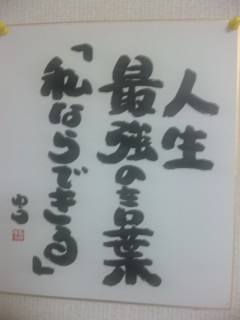 人生
最強の言葉
「私ならできる」